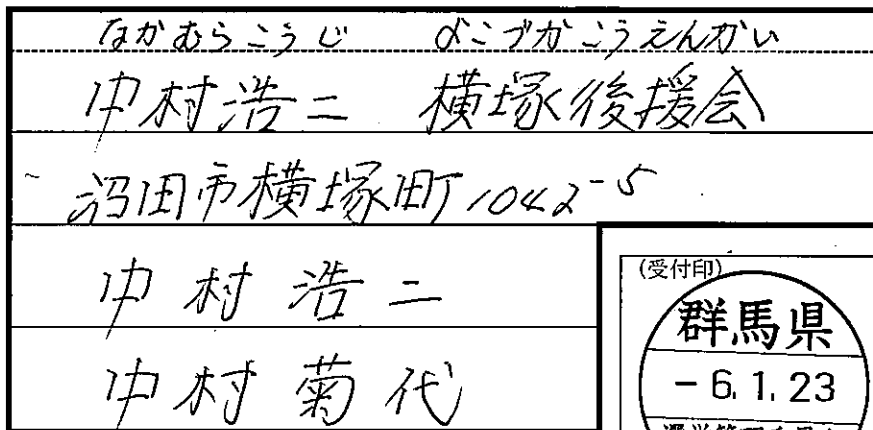 なかむらこうじ よこづかこうえんかい
中村浩二 横塚後援会
沼田市横塚町1042-5
中村浩二
中村菊代
(受付印)
群馬県
-6.1.23